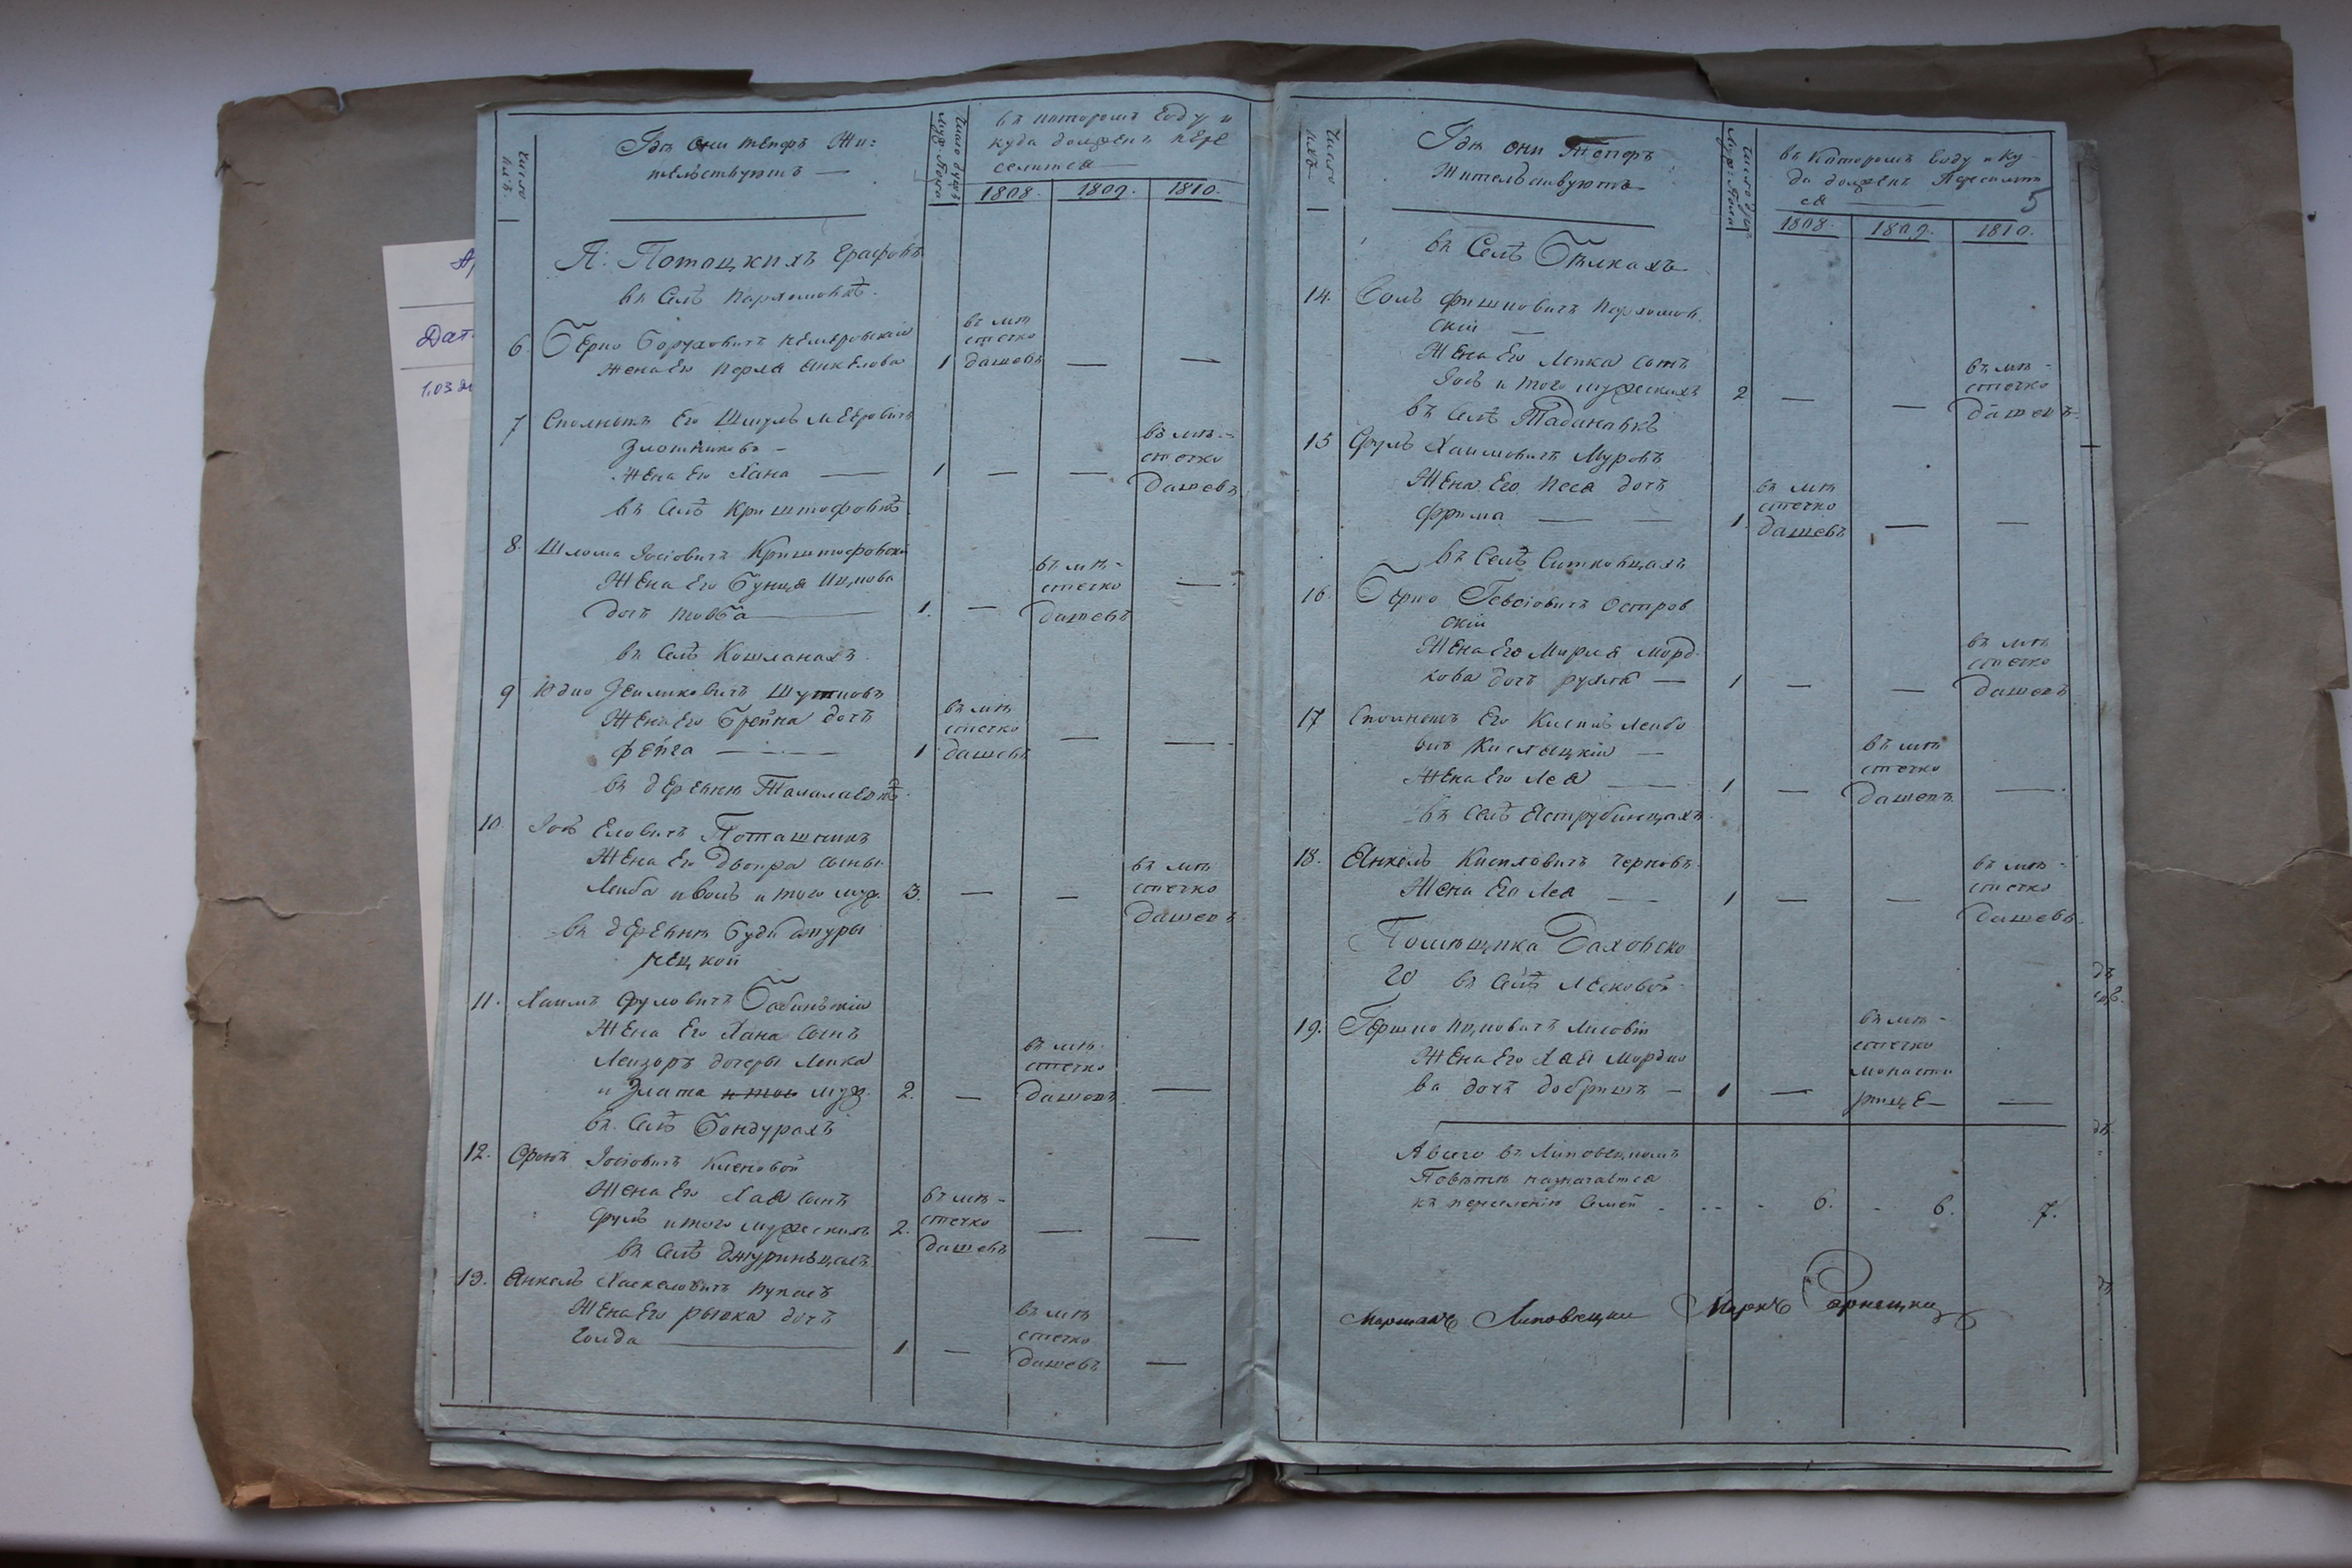 Число
ихъ.
Гдѣ они теперь Жи=
тельствуютъ —
Число душъ
муж. Пола
въ которомъ Году и
куда долженъ пере
селится —
1808. 1809. 1810.
П: Потоцкихъ Графовъ
въ Селѣ Пархомовкѣ.
6. Берко Боруховичъ Немировскій
Жена Его Перля Янкелова 1
въ мѣ
стечко
Дашевъ — —
7 Споляютъ Его Шмуль Меѣровичъ
Злотниковъ —
Жена Его Хана — 1 — —
въ мѣ=
стечко
Дашевъ
въ Селѣ Криштофовкѣ
8. Шлома Іосіовичъ Криштофовскій
Жена Его Бунця Ицкова
дочь Товба — 1. —
въ мѣ-
стечко
Дашевъ —
въ Селѣ Кошланахъ.
9 Юдко Зейликовичъ Шутновъ
Жена Его Брейна дочь
Фейга — 1
въ мѣ
стечко
Дашевъ — —
въ деревни Талалаевкѣ.
10. Іось Еловичъ Поташникъ
Жена Его Двойра сыны
Лейба и Волъ итого муж. 3. — —
въ мѣ
стечко
Дашевъ.
въ деревни Буди Джуры
нецкой
11. Хаимъ Сруловичъ Бабинскій
Жена Его Хана сынъ
Лейзоръ дочеры Лейка
и Злата итого муж. 2. —
въ мѣ-
стечко
Дашевъ —
въ Селѣ Бондурахъ
12. Іосіовичъ Кленовой
Жена Его Хая сынъ
Сруль итого мужескихъ 2.
въ мѣ-
стечко
Дашевъ — —
въ Селѣ Джуринцахъ
13. Янкель Хаскеловичъ
Жена Его Рывка дочь
Голда — 1 —
въ мѣ
стечко
Дашевъ —
Число
ихъ
Гдѣ они Теперь
Жительствуютъ
Число душъ
муж: Пола
въ которомъ Году и Ку-
да долженъ Переселит
ся — 5
1808. 1809. 1810.
въ Селѣ Бѣлкахъ
14. Соль Фишковичъ Пархомов
скій —
Жена Его Лейка сынъ
Іось итого мужескихъ 2 — —
въ мѣ-
стечко
Дашевъ.
въ Селѣ
15 Сруль Хаимовичъ Муровъ
Жена Его Песя дочь
Фрима — — 1.
въ мѣ
стечко
Дашевъ — —
въ Селѣ Ситковцахъ
16. Берко Іевсіовичъ Остров
скій
Жена Его Мирля Морд-
кова дочь Рухля — 1 — —
въ мѣ
стечко
Дашевъ
17 Споляютъ Его Кисиль Лейбо
вичъ —
Жена Его Лея — 1 —
въ мѣ
стечко
Дашевъ. —
въ Селѣ Яструбинцахъ
18. Янкель Кисиловичъ Черновъ.
Жена Его Лея — 1 — —
въ мѣ-
стечко
Дашевъ.
Помѣщика Даховско
го въ Селѣ Лесковой
19. Гершко Ицковичъ Лисовій
Жена Его Хая Мордко
ва дочь Добришъ — 1 —
въ мѣ-
стечко
Монасти
рище — —
А всего въ Липовецкомъ
Повѣтѣ назначается
къ переселенію Семей - - - - 6. - 6. 7.
Маршалъ Липовецки